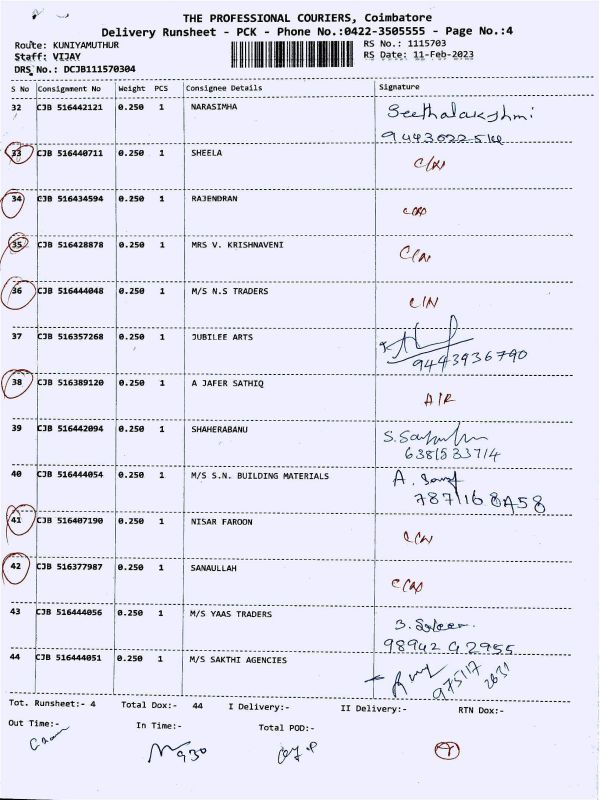 THE PROFESSIONAL COURIERS, Coimbatore
Delivery Runsheet - PCK - Phone No.:0422-3505555 - Page No.:4
Route: KUNIYAMUTHUR RS No.: 1115703
Staff: VIJAY RS Date: 11-Feb-2023
DRS No.: DCJB111570304
S No Consignment No Weight PCS Consignee Details Signature
32 CJB 516442121 0.250 1 NARASIMHA Seethalakshmi
33 CJB 516440711 0.250 1 SHEELA
34 CJB 516434594 0.250 1 RAJENDRAN
35 CJB 516428878 0.250 1 MRS V. KRISHNAVENI
36 CJB 516444048 0.250 1 M/S N.S TRADERS
37 CJB 516357268 0.250 1 JUBILEE ARTS
9443936790
38 CJB 516389120 0.250 1 A JAFER SATHIQ A/R
39 CJB 516442094 0.250 1 SHAHERABANU
6381533714
40 CJB 516444054 0.250 1 M/S S.N. BUILDING MATERIALS
41 CJB 516407190 0.250 1 NISAR FAROON
42 CJB 516377987 0.250 1 SANAULLAH
43 CJB 516444056 0.250 1 M/S YAAS TRADERS
44 CJB 516444051 0.250 1 M/S SAKTHI AGENCIES
Tot. Runsheet:- 4 Total Dox:- 44 I Delivery:- II Delivery:- RTN Dox:-
Out Time:- In Time:- Total POD:-